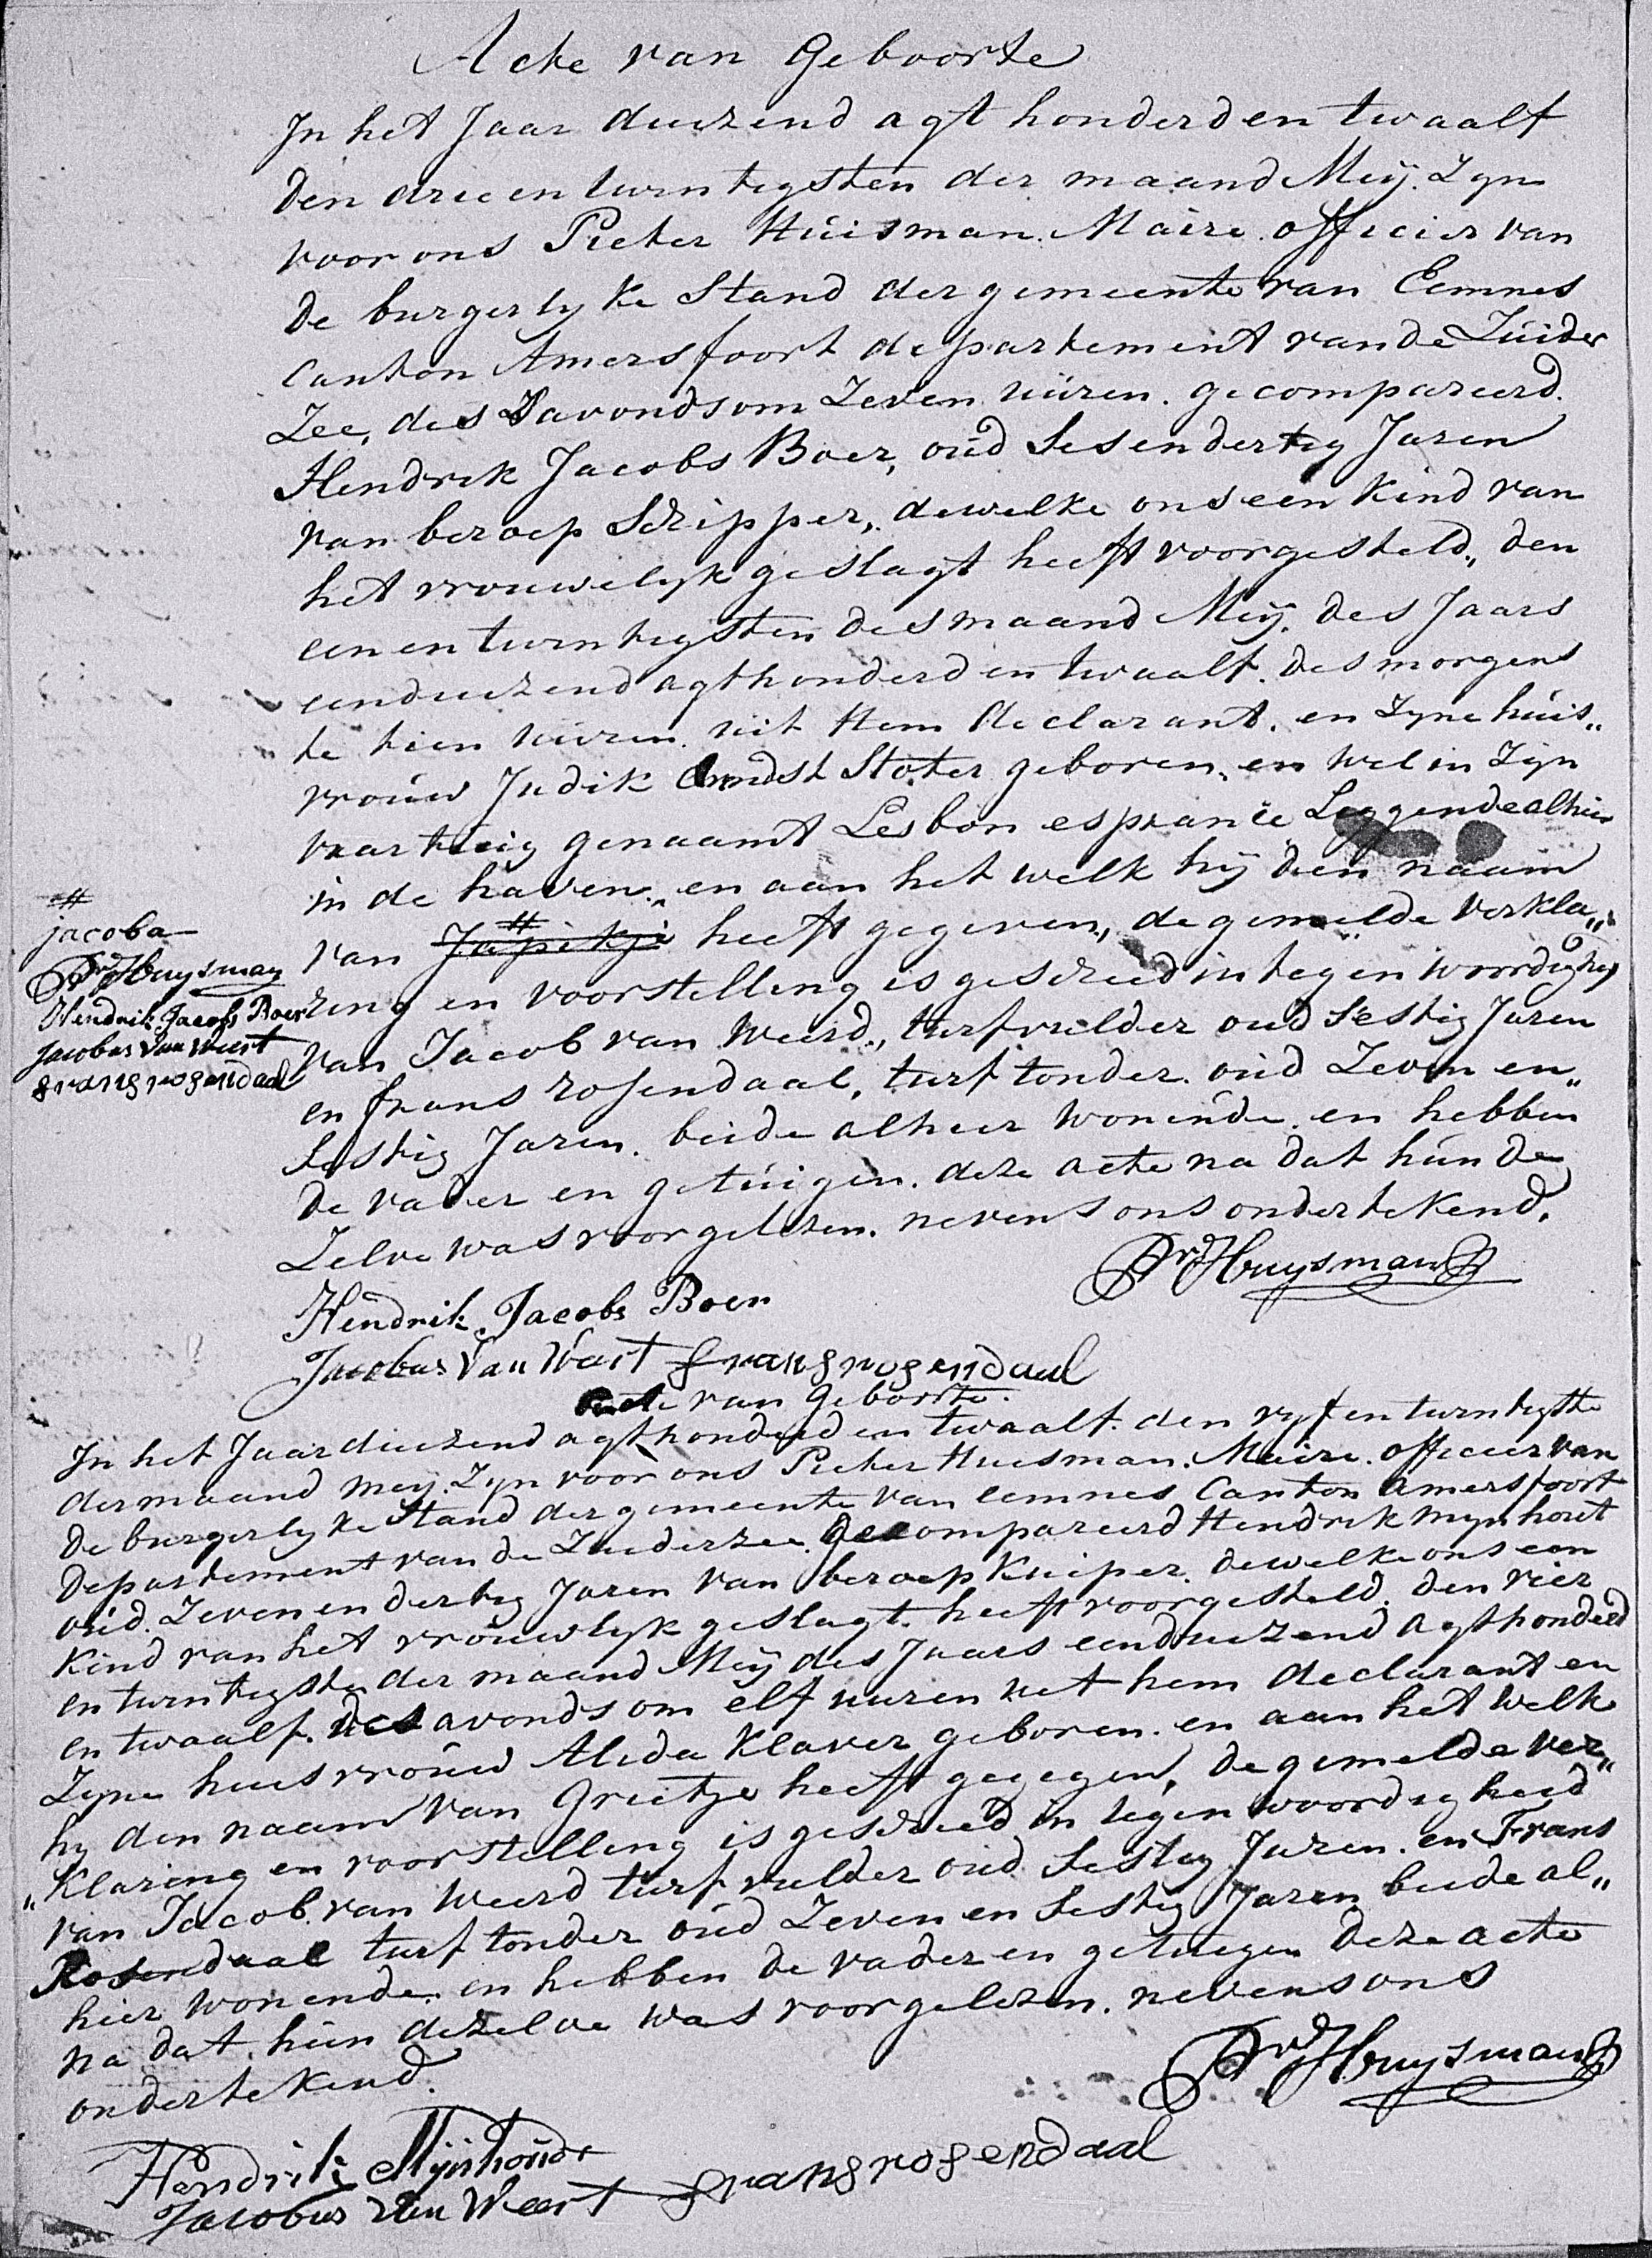 Acte van Geboorte
In het Jaar duizend agt honderd en twaalf
den drie en twintigsten der maand Meij. Zyn
voor ons Pieter Huisman. Maire. officier van
de burgerlyke Stand der gemeente van Eemnes
Canton Amersfoort departement van de Zuider
Zee, des avonds om Zeven uuren. gecompareerd.
Hendrik Jacobs Boer, oud Ses en dertig Jaren
van beroep Schipper, dewelke ons een Kind van
het vrouwelyk geslagt heeft voorgesteld, den
een en twintigsten des maand Meij. des Jaars
eenduizend agthonderd en twaalf. des morgens
te tien uuren. uit Hem declarant. en Zyne huis„
vrouw Judik Stoter geboren, en wel in Zyn
vaartuig genaamt Lesbon esprance Leggende alhier
in de haven. en aan het welk hij den naam
van # Japikje heeft gegeven, de gemelde verkla„
ring en voorstelling is geschied in tegenwoordighey
van Jacob van Weerd, turfvulder oud Sestig Jaren
en frans rosendaal, turftonder. oud Zeven en„
Sestig Jaren. beide alhier wonende. en hebben
de vader en getuigen. deze acte na dat hun de
Zelve was voorgelezen. nevens ons ondertekend.
#
jacoba
Pr Huysman
Hendrik Jacobs Boer
Jacobus van Weert
frans rosendaal
Pr Huysman
Hendrik Jacobs Boer
Jacobus Van Wart frans rosendaal
Acte van Geboorte.
In het Jaar duizend agthonderd en twaalf. den vyf en twintigste
der maand Mey. Zyn voor ons Pieter Huisman. Maire. officier van
de burgerlyke Stand der gemeente van eemnes Canton amersfoort
departement van de Zuiderzee. gecompareerd Hendrik Mynhout
oud. Zeven en dertig Jaren van beroep Kuiper. dewelke ons een
Kind van het vrouwlyk geslagt. heeft voorgesteld. den vier
en twintigste der maand Meij des Jaars eenduizend agthonderd
en twaalf. des avonds om elf uuren uit hem declarant en
Zyne huisvrouw Alida Klaver geboren. en aan het welk
hy den naam van Grietje heeft gegegen, de gemelde ver„
„klaring en voorstelling is geschied in tegenwoordigheid
van Jacob. van Weerd turfvulder oud Sestig Jaren. en Frans
Rosendaal turftonder oud Zeven en Sestig Jaren beide al„
hier wonende. en hebben de vader en getuigen deze acte
na dat. hun dezelve was voorgelezen. nevens ons
ondertekend.
Pr Huysman
Hendrik Mijnhoudt
Jacobus Van Weert frans rosendaal